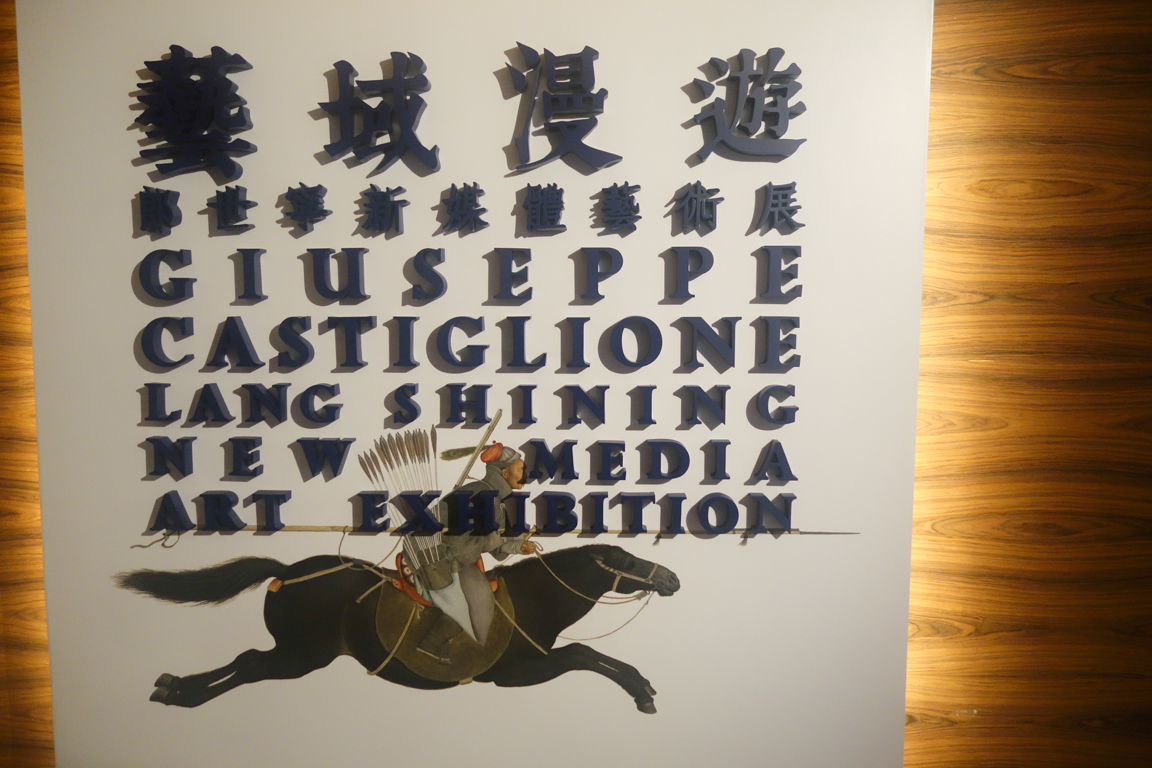 藝域漫遊
郎世寧新媒體藝術展
GIUSEPPE
CASTIGLIONE
LANG SHINING
NEW MEDIA
ART EXHIBITION